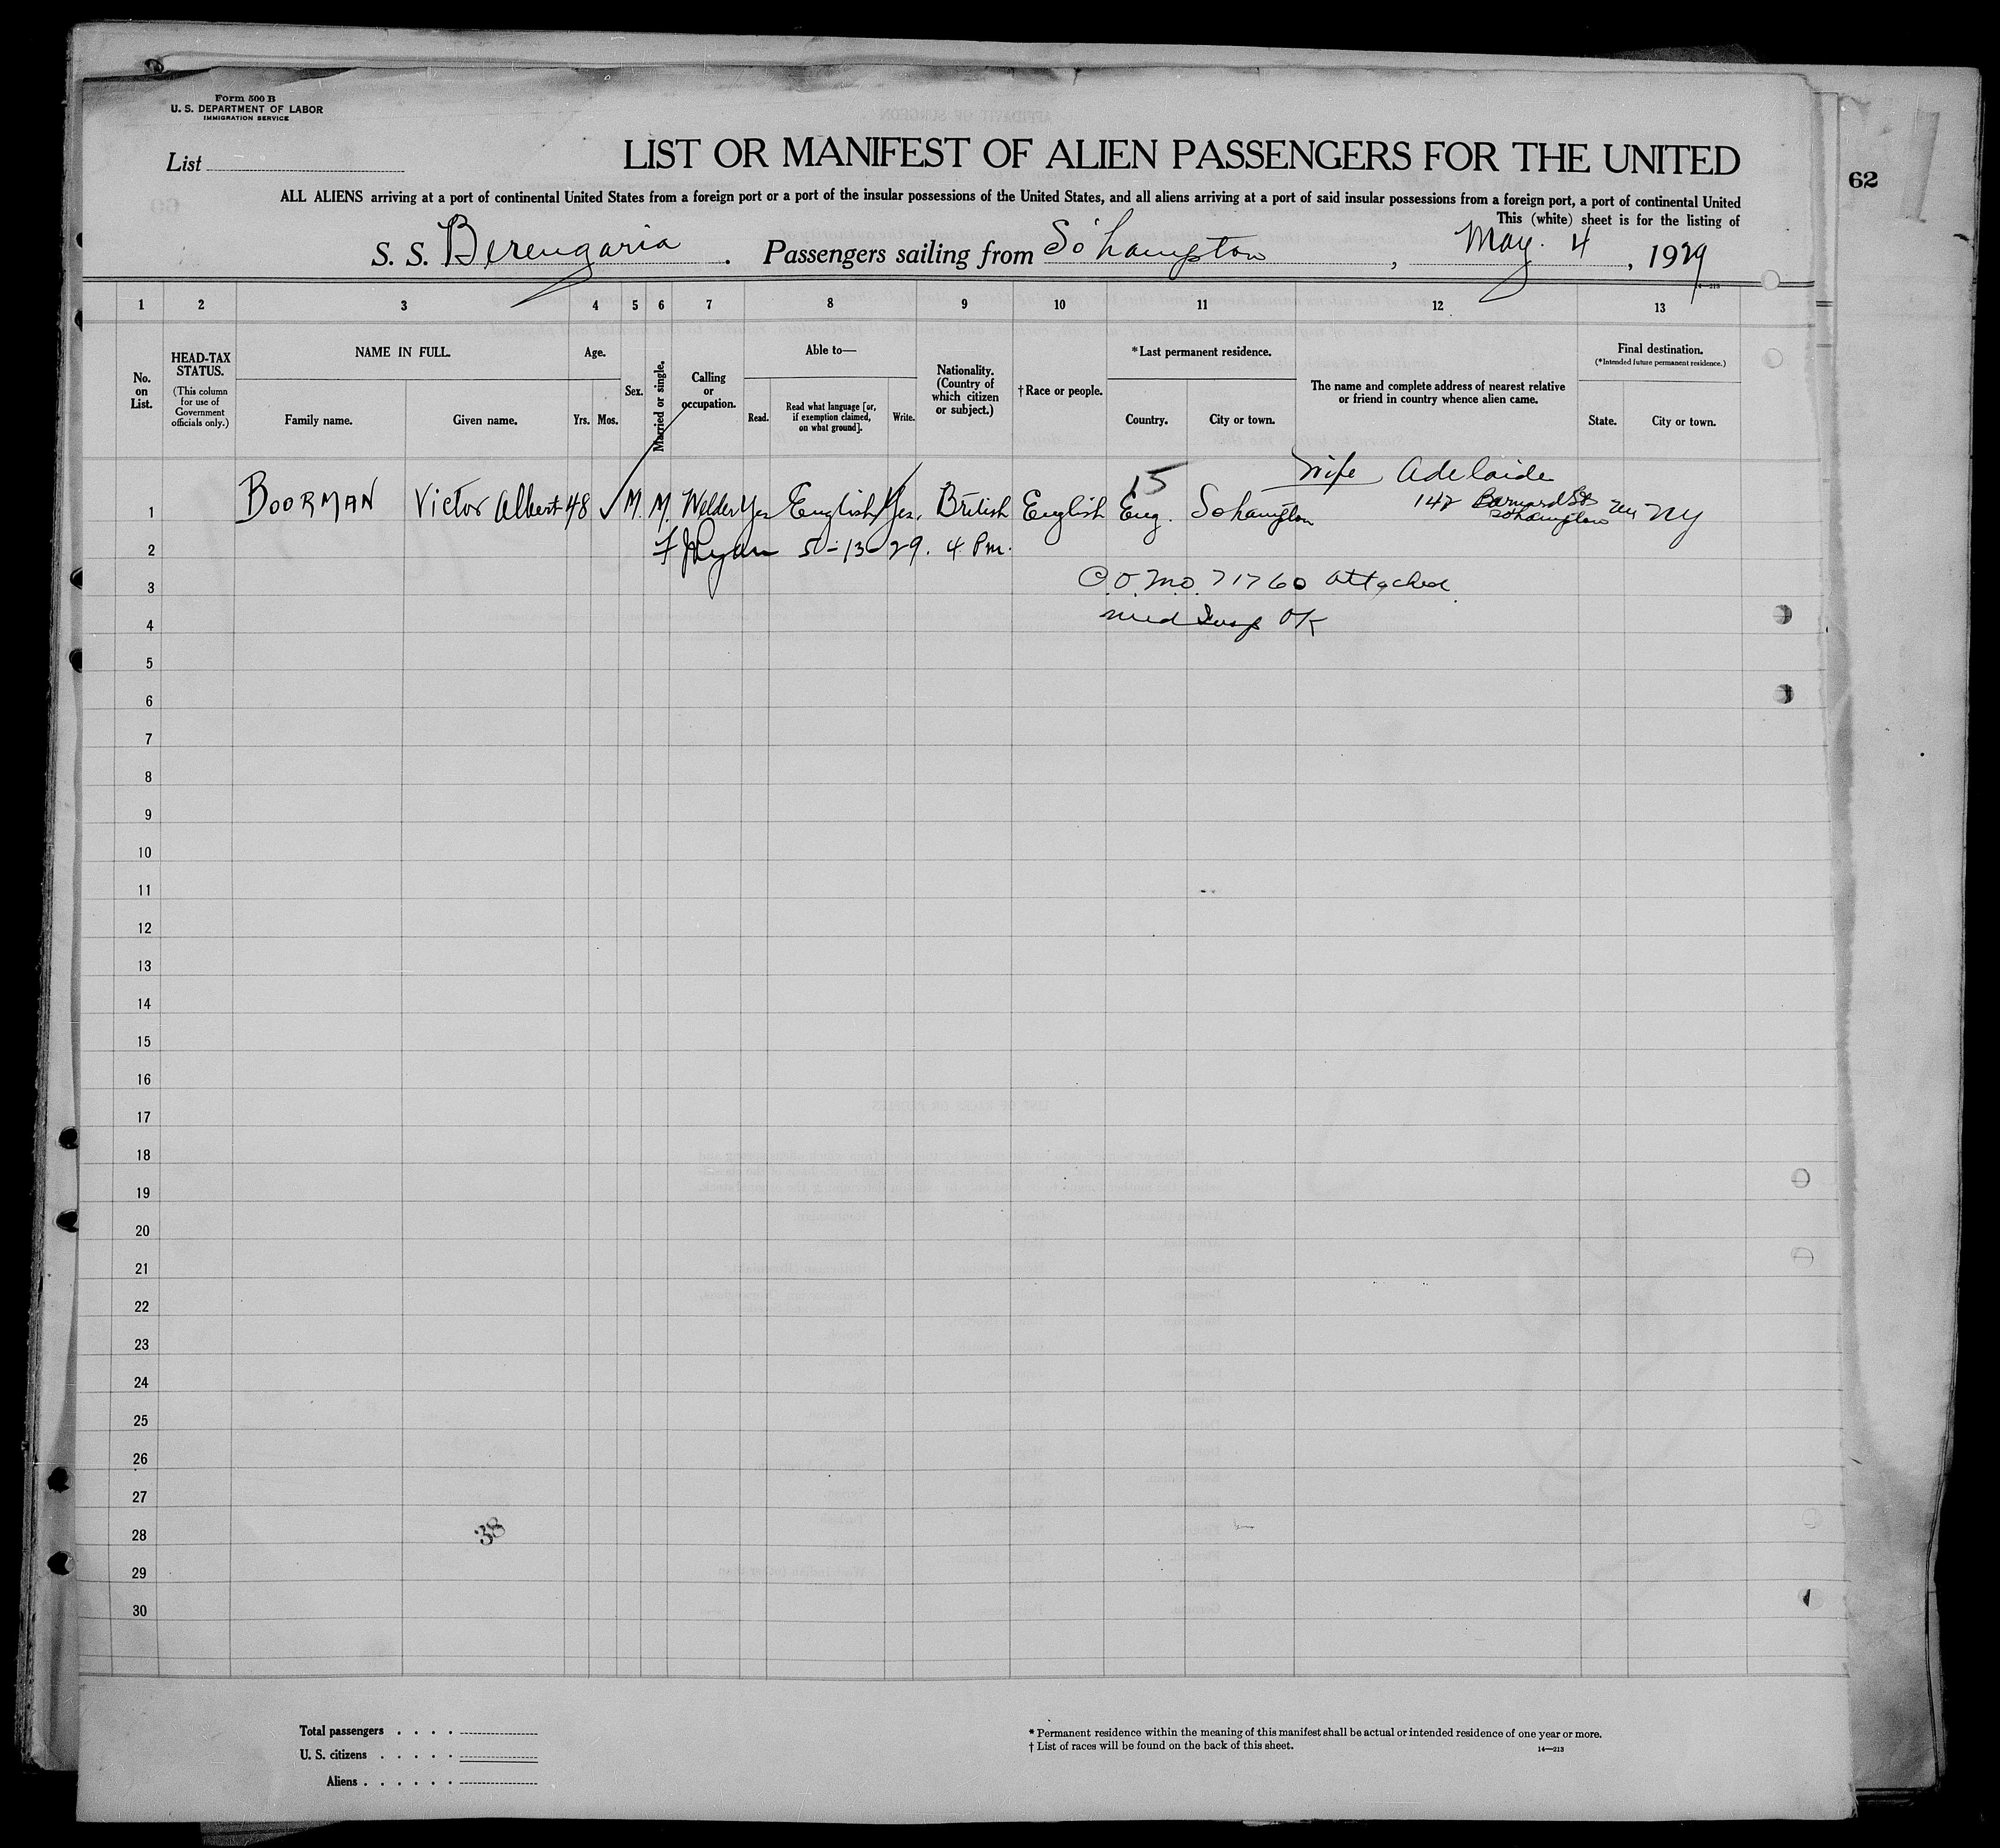 Form 500 B
U. S. DEPARTMENT OF LABOR
IMMIGRATION SERVICE
List
LIST OR MANIFEST OF ALIEN PASSENGERS FOR THE UNITED
62
ALL ALIENS arriving at a port of continental United States from a foreign port or a port of the insular possessions of the United States, and all aliens arriving at a port of said insular possessions from a foreign port, a port of continental United
This (white) sheet is for the listing of
S. S. Berengaria. Passengers sailing from So'hampton, May. 4, 1929
14—213
1 2 3 4 5 6 7 8 9 10 11 12 13
No. on List.
HEAD-TAX STATUS.
(This column for use of Government officials only.)
NAME IN FULL.
Family name. Given name.
Age.
Yrs. Mos.
Sex.
Married or single.
Calling or occupation.
Able to—
Read. Read what language [or, if exemption claimed, on what ground]. Write.
Nationality. (Country of which citizen or subject.)
† Race or people.
* Last permanent residence.
Country. City or town.
The name and complete address of nearest relative or friend in country whence alien came.
Final destination.
(* Intended future permanent residence.)
State. City or town.
15 wife Adelaide
1 BOORMAN Victor Albert 48 ✓ M. M. Welder Yes English Yes. British English Eng. Sohampton 142 Barnard St Sohampton NY NY
2 F J Ryan 5-13-29. 4 Pm.
3 C.O. No. 71760 attached
4 med Insp OK
5
6
7
8
9
10
11
12
13
14
15
16
17
18
19
20
21
22
23
24
25
26
27
28 38
29
30
Total passengers . . . .
U. S. citizens . . . . .
Aliens . . . . . .
* Permanent residence within the meaning of this manifest shall be actual or intended residence of one year or more.
† List of races will be found on the back of this sheet.
14—213